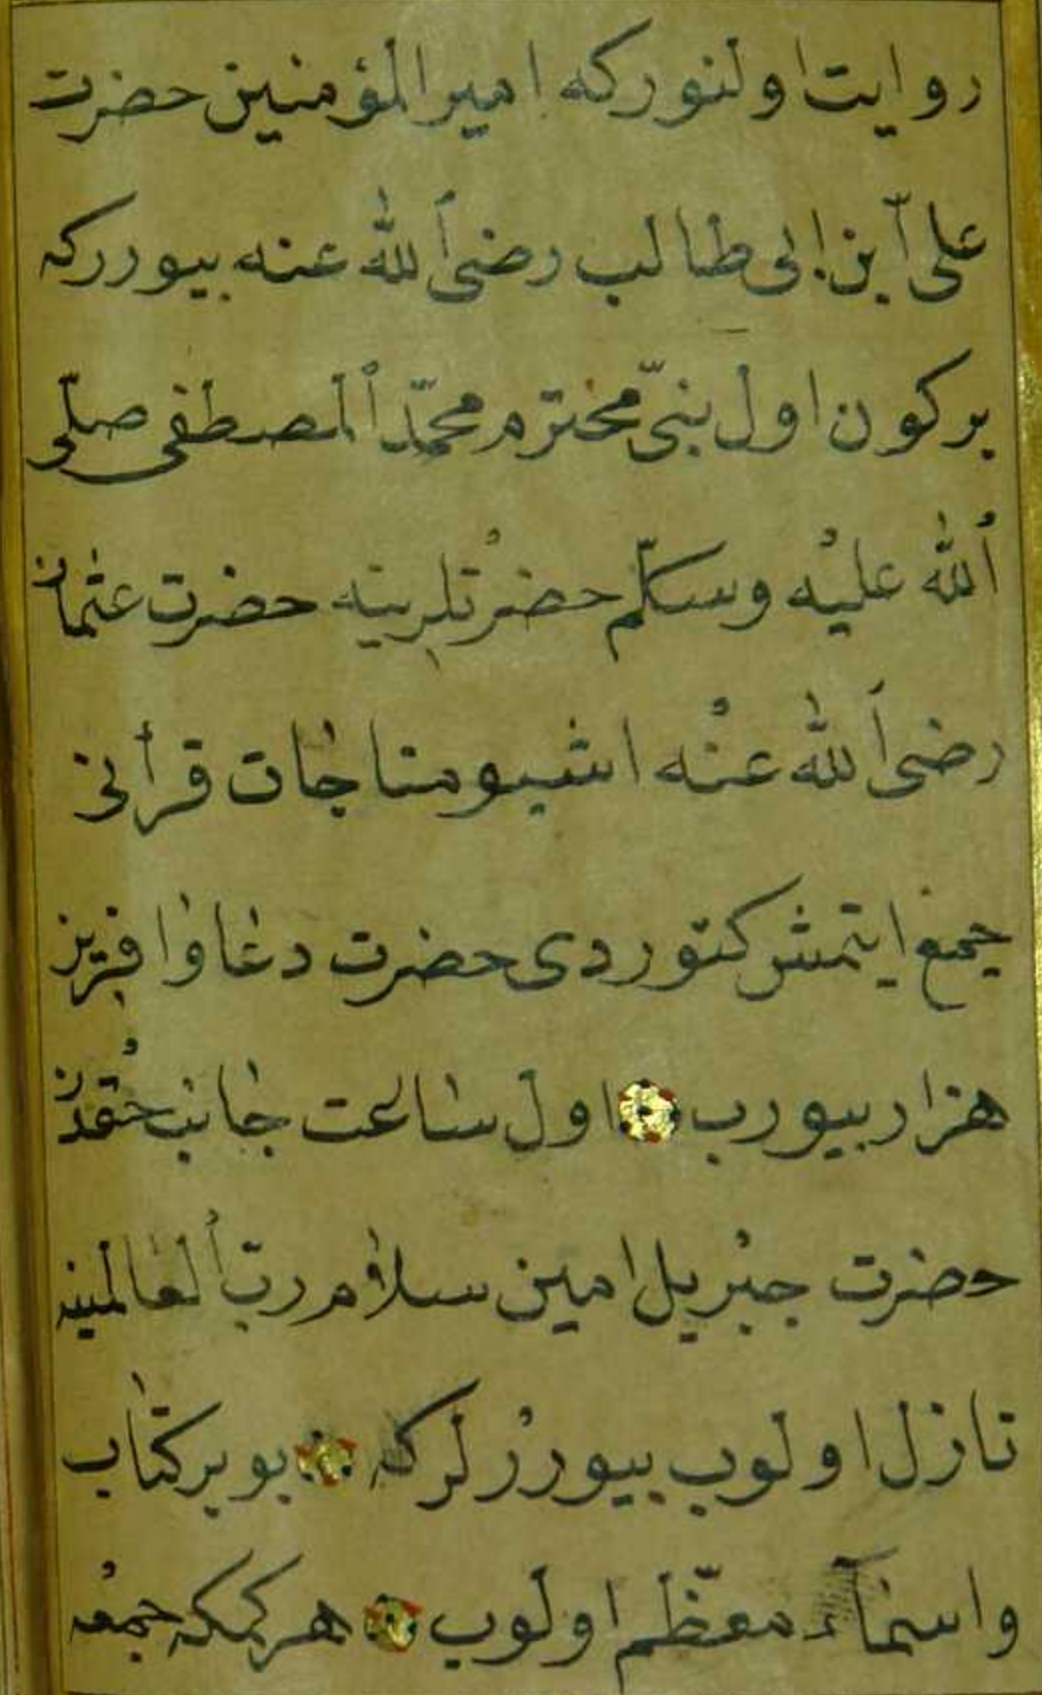 روايت اولنوركه اميرالمؤمنين حضرت
على ٱبن ابى طالب رضى ٱلله عنه بيورركه
بركون اول نبىّ محترم محمّد ٱلمصطفى صلّى
ٱلله عليْه وسلّم حضرْتلرينه حضرت عثمان
رضى ٱلله عنْه اشبو مناجات قرأنى
جمع ايتمش كتوردى حضرت دعا وافرين
هزار بيورب اول ساعت جانب حقدن
حضرت جبْريل امين سلام ربّ ٱلعالمينه
نازل اولوب بيوررلركه بو بر كتاب
واسمآء معظّم اولوب هركمكه جمعه